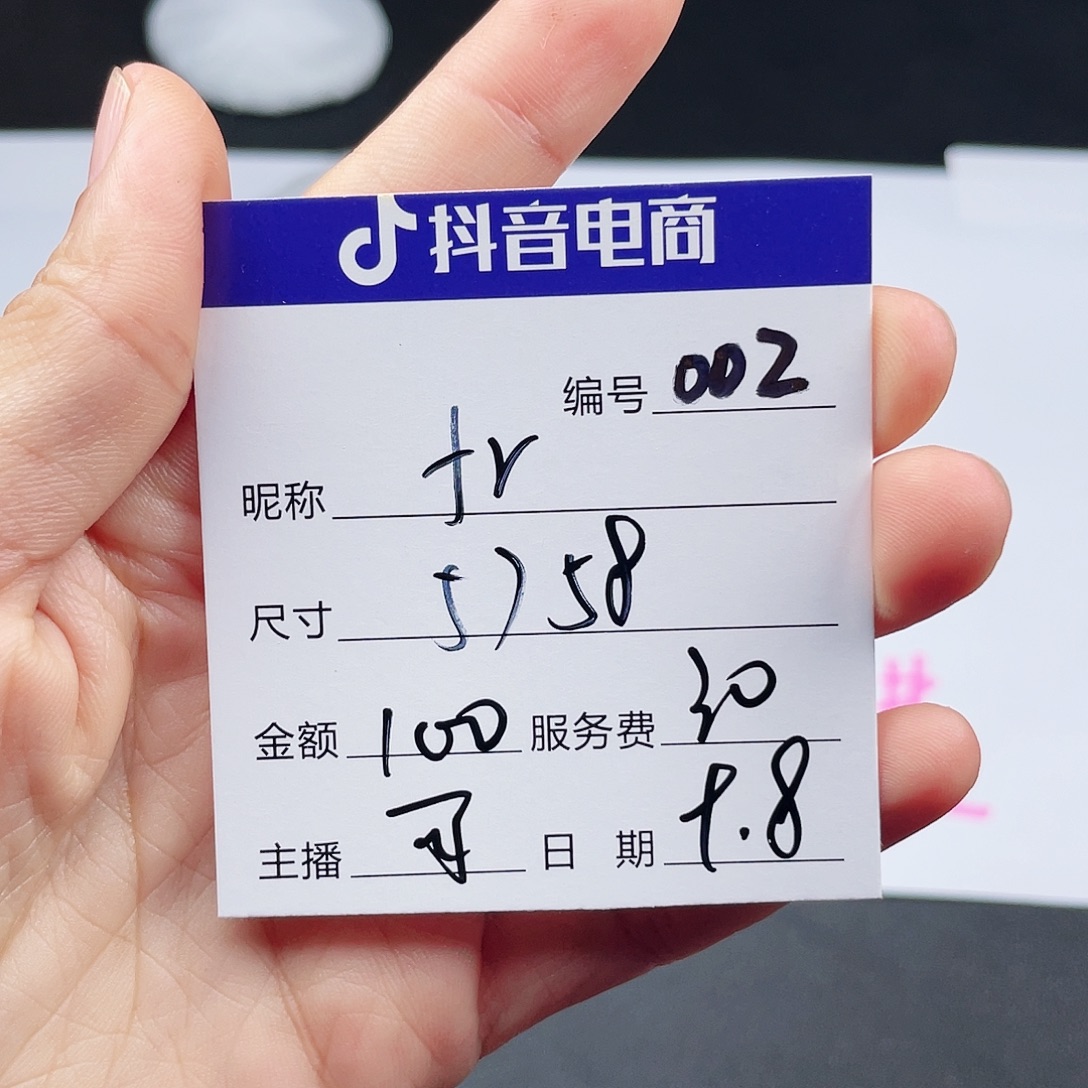 抖音电商
编号 002
昵称 tr
尺寸 57 58
金额 100 服务费 30
主播
日期 9.8